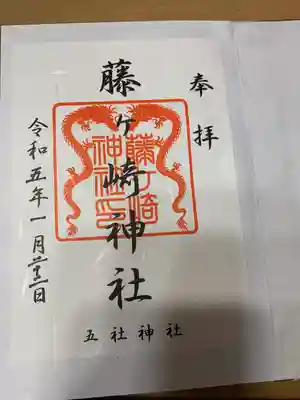 奉拝
藤ヶ崎神社
藤ヶ崎
神社印
五社神社
令和五年一月廿三日